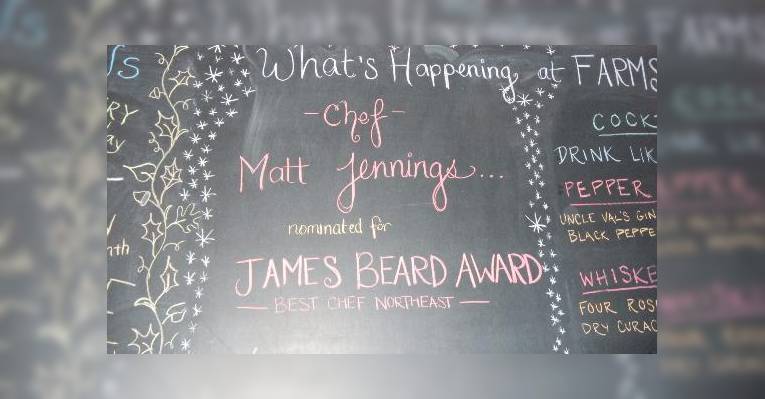 What's Happening at FARMS
-Chef-
Matt Jennings...
nominated for
JAMES BEARD AWARD
— BEST CHEF NORTHEAST —
COCK
DRINK LIK
PEPPER
UNCLE VAL'S GIN
BLACK PEPPE
WHISKE
FOUR ROS
DRY CURAC